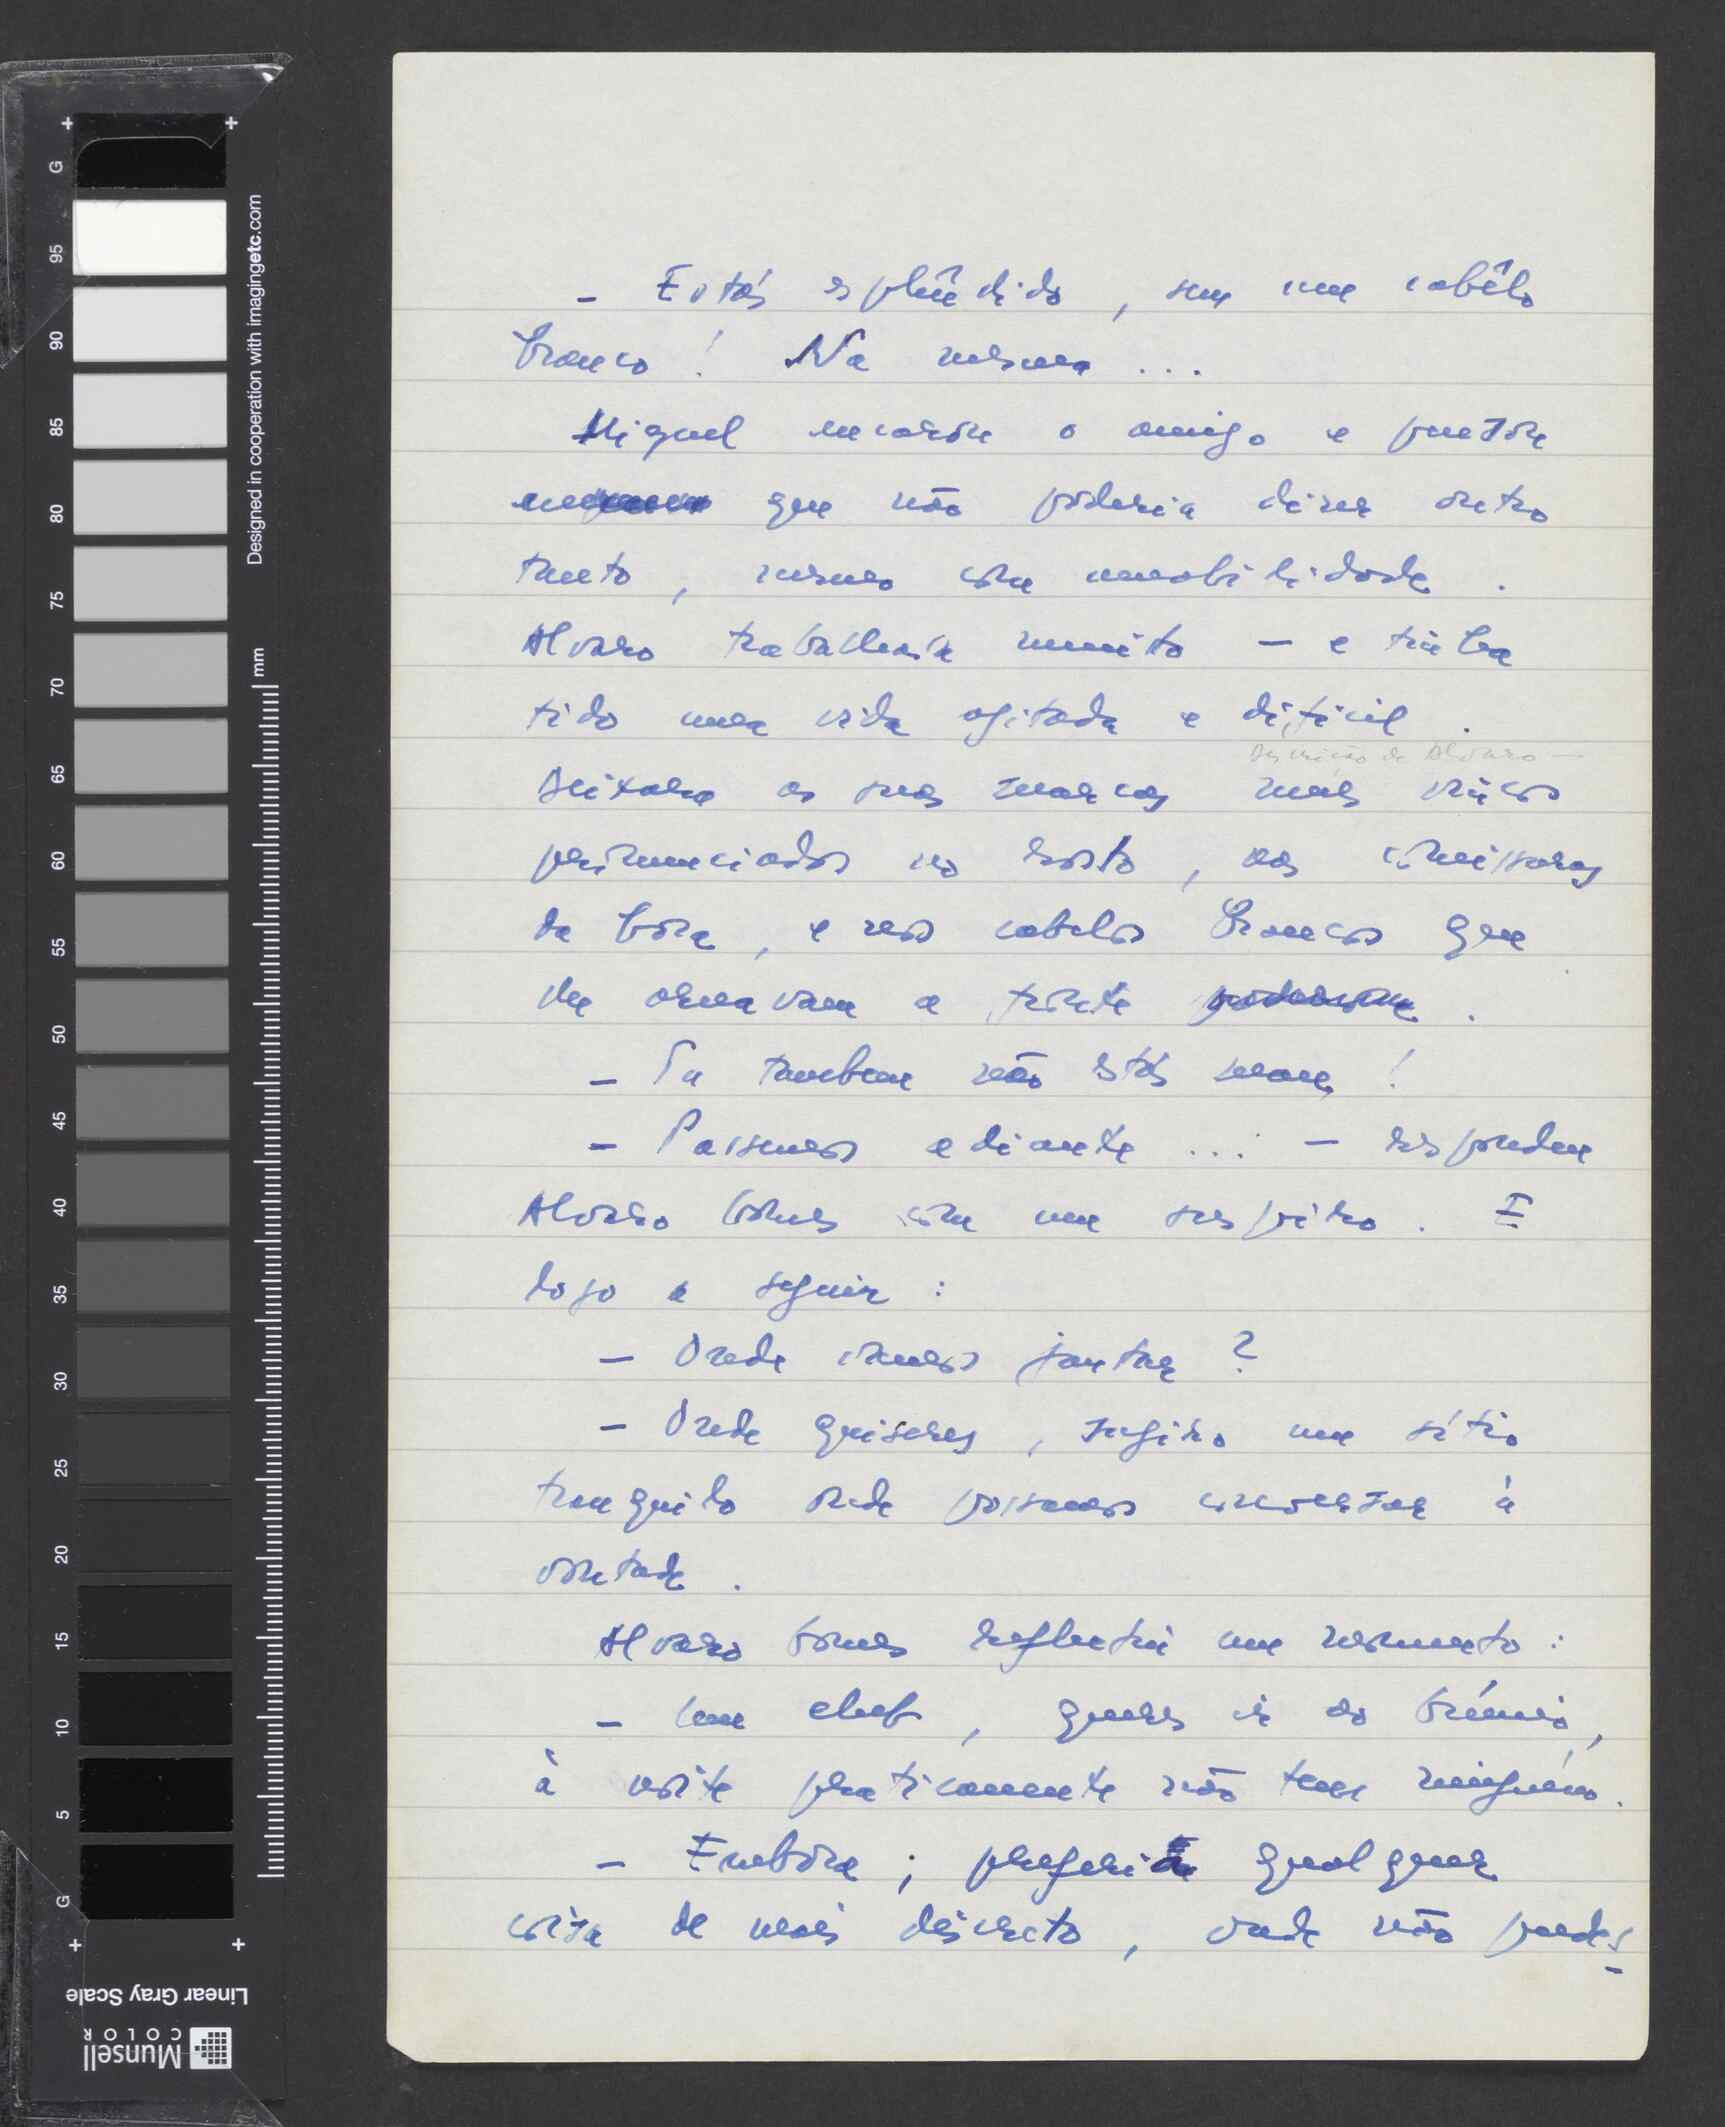 — Estás esplêndido, sem um cabêlo
branco! Na mesma...
Miguel encarou o amigo e pensou
que não poderia dizer outro
tanto, mesmo com amabilidade.
Alvaro trabalhara muito — e tinha
tido uma vida agitada e difícil.
Descrição de Alvaro —
Deixara as suas marcas nos vincos
pronunciados no rosto, nas comissuras
da boca, e nos cabelos brancos que
lhe ornavam a fronte.
— Tu tambem não estás mau!
— Passemos adiante... — respondeu
Alvaro Gomes com um suspiro. E
logo a seguir:
— Onde vamos jantar?
— Onde quiseres, sugiro um sítio
tranquilo onde possamos conversar à
vontade.
Alvaro Gomes reflectiu um momento:
— Um club, queres ir ao Grémio,
à noite praticamente não tem ninguém.
— Embora; preferia qualquer
coisa de mais discreto, onde não pudes
Designed in cooperation with imagingetc.com
mm
G 95 90 85 80 75 70 65 60 55 50 45 40 35 30 25 20 15 10 5 G
Linear Gray Scale
Munsell
COLOR